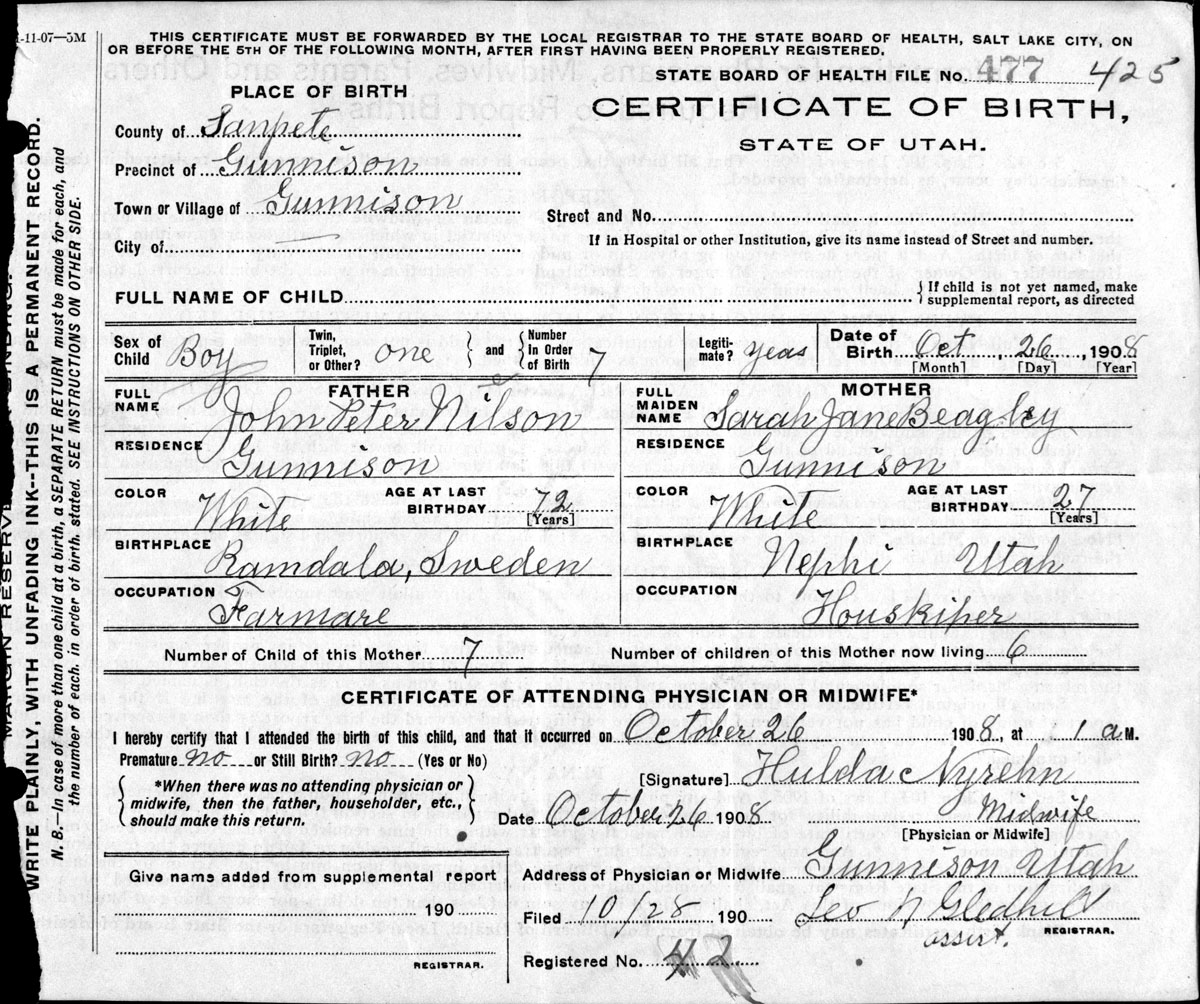 1-11-07—5M
THIS CERTIFICATE MUST BE FORWARDED BY THE LOCAL REGISTRAR TO THE STATE BOARD OF HEALTH, SALT LAKE CITY, ON
OR BEFORE THE 5TH OF THE FOLLOWING MONTH, AFTER FIRST HAVING BEEN PROPERLY REGISTERED.
STATE BOARD OF HEALTH FILE No. 477 425
PLACE OF BIRTH
CERTIFICATE OF BIRTH,
STATE OF UTAH.
County of Sanpete
Precinct of Gunnison
Town or Village of Gunnison
Street and No.
City of
If in Hospital or other Institution, give its name instead of Street and number.
FULL NAME OF CHILD
{ If child is not yet named, make
supplemental report, as directed
Sex of Child Boy
Twin, Triplet, or Other? one } and { Number In Order of Birth 7
Legiti-mate? yeas
Date of Birth Oct, 26, 1908
[Month] [Day] [Year]
FATHER
FULL NAME John Peter Nilson
RESIDENCE Gunnison
COLOR White
AGE AT LAST BIRTHDAY 72 [Years]
BIRTHPLACE Ramdala, Sweden
OCCUPATION Farmare
MOTHER
FULL MAIDEN NAME Sarah Jane Beagley
RESIDENCE Gunnison
COLOR White
AGE AT LAST BIRTHDAY 27 [Years]
BIRTHPLACE Nephi Utah
OCCUPATION Houskiper
Number of Child of this Mother 7
Number of children of this Mother now living 6
CERTIFICATE OF ATTENDING PHYSICIAN OR MIDWIFE*
I hereby certify that I attended the birth of this child, and that it occurred on October 26 1908, at 1 a M.
Premature no or Still Birth? no (Yes or No)
{ *When there was no attending physician or
midwife, then the father, householder, etc.,
should make this return. }
[Signature] Hulda Nyrehn
Date October 26 1908 Midwife
[Physician or Midwife]
Address of Physician or Midwife Gunnison Utah
Filed 10/28 190 Leo N Gledhill
assist. REGISTRAR.
Registered No. 42
Give name added from supplemental report
190
REGISTRAR.
WRITE PLAINLY, WITH UNFADING INK--THIS IS A PERMANENT RECORD.
N. B.—In case of more than one child at a birth, a SEPARATE RETURN must be made for each, and
the number of each, in order of birth, stated. SEE INSTRUCTIONS ON OTHER SIDE.